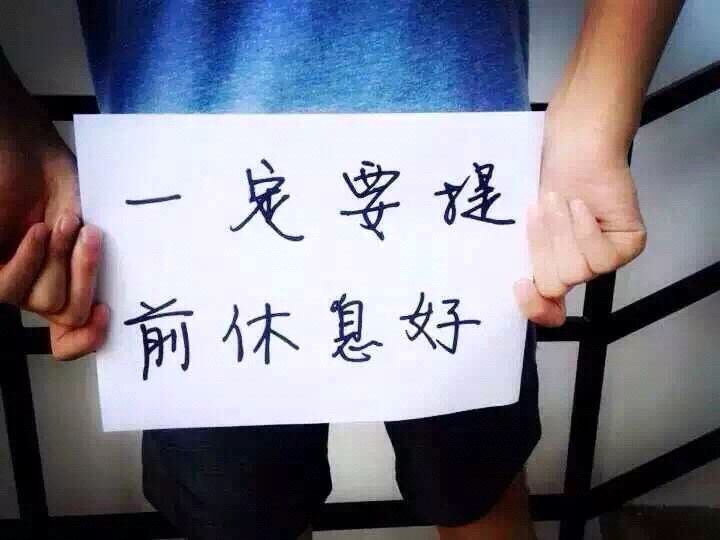 一定要提
前休息好